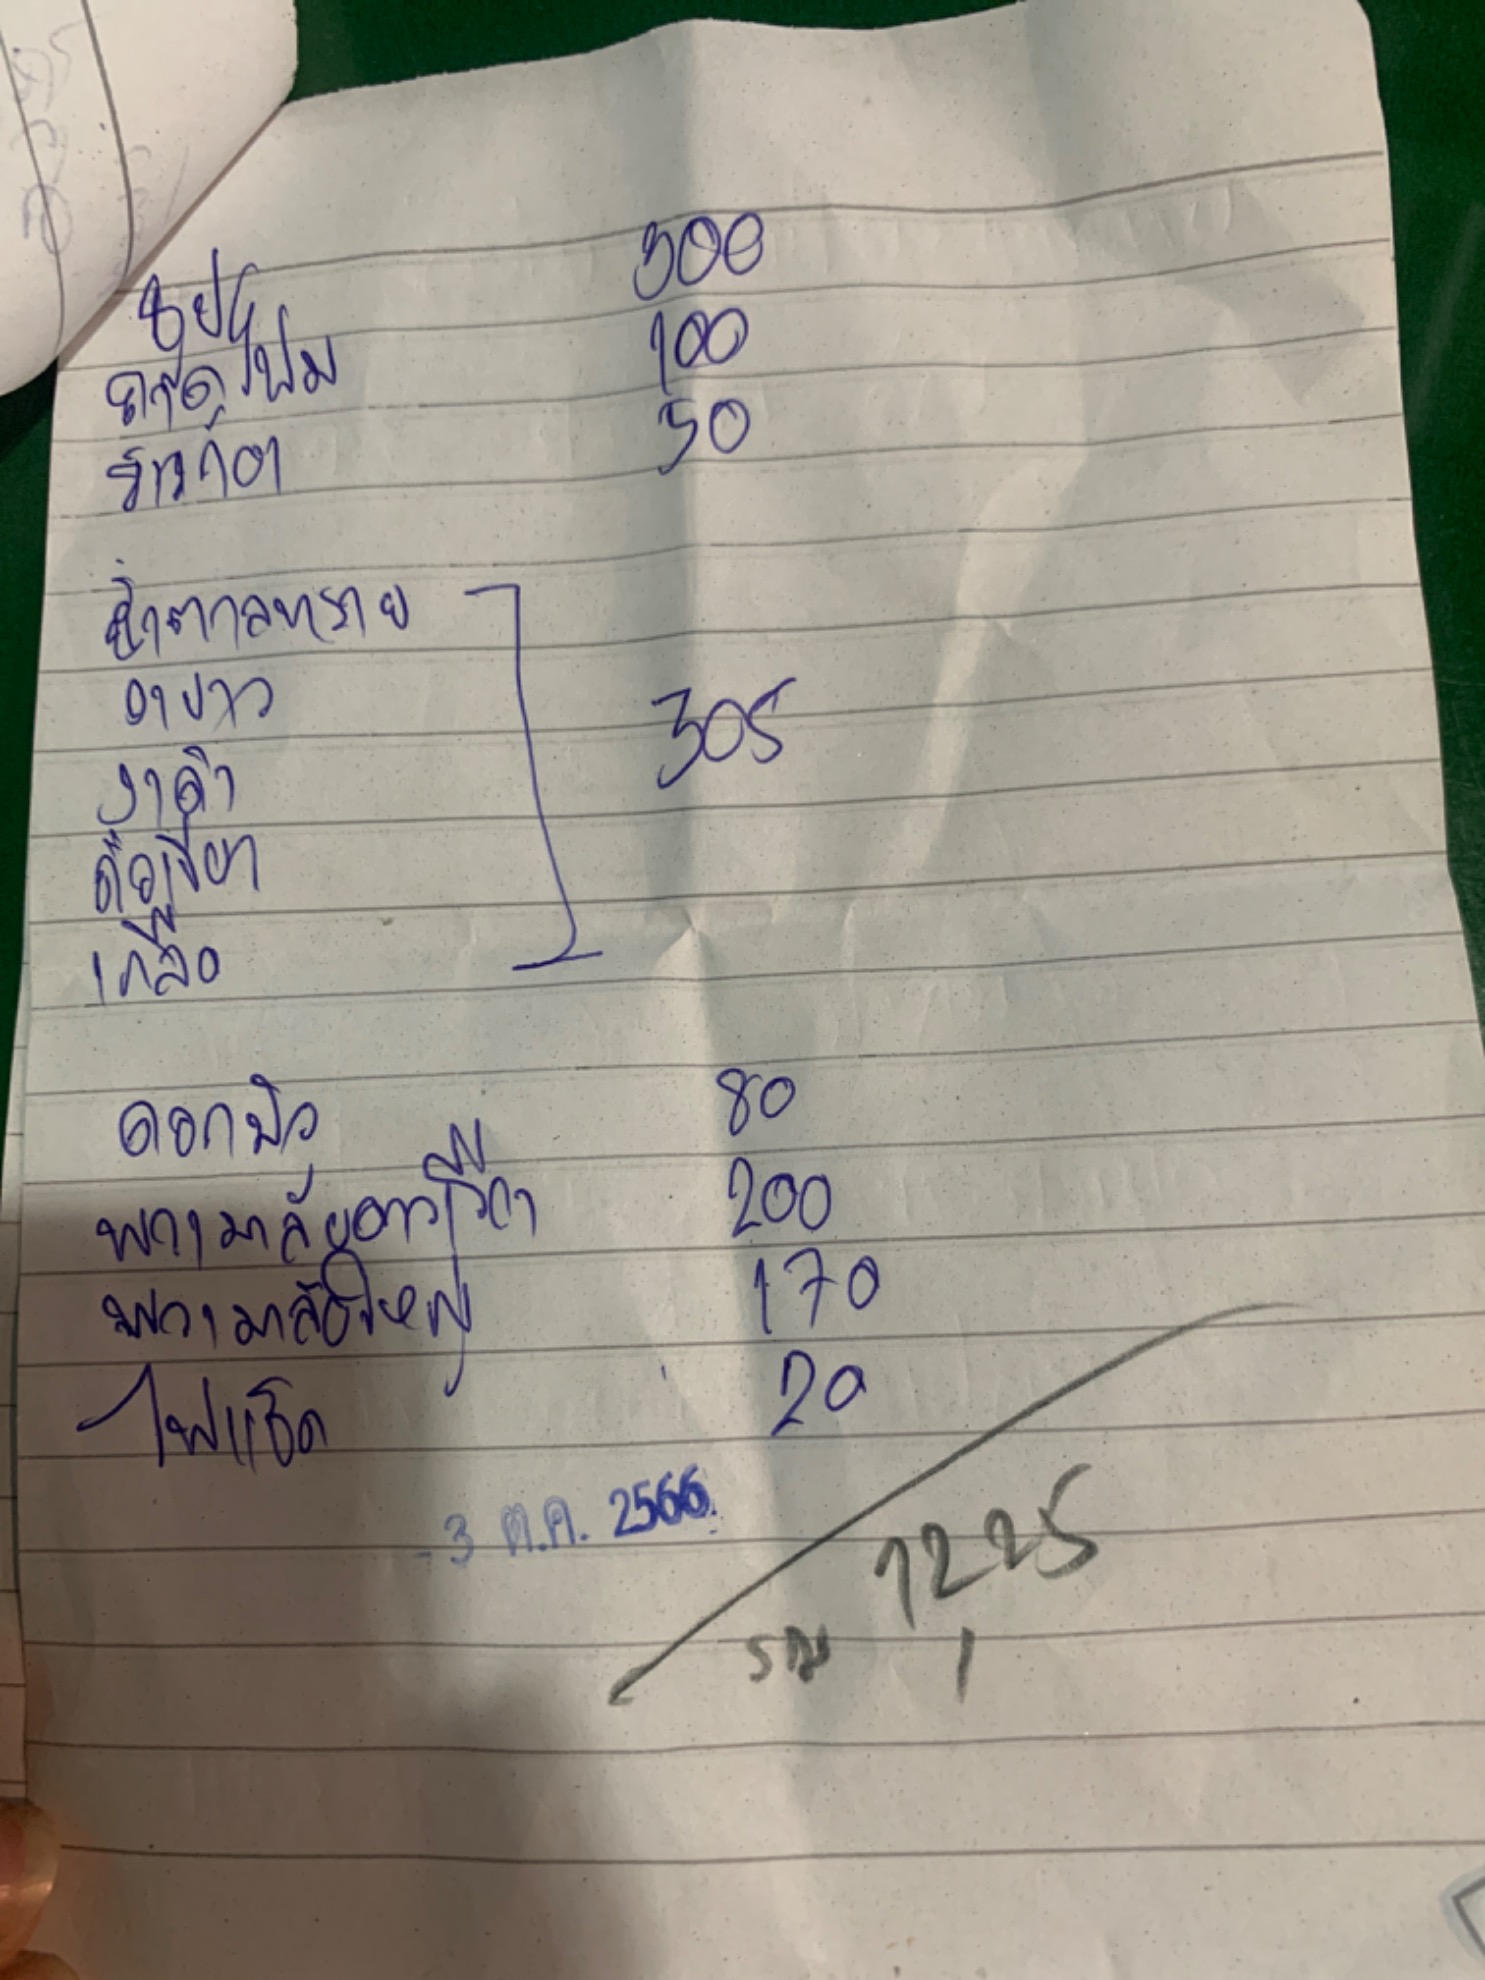 ธูป 300
ถาดโฟม 100
50
น้ำตาลทราย
งาขาว
งาดำ 305
ถั่วเขียว
เกลือ
ดอกบัว 80
พวงมาลัยดาวเรือง 200
พวงมาลัยใหญ่ 170
ไฟแช็ค 20
- 3 ต.ค. 2566
รวม 1225